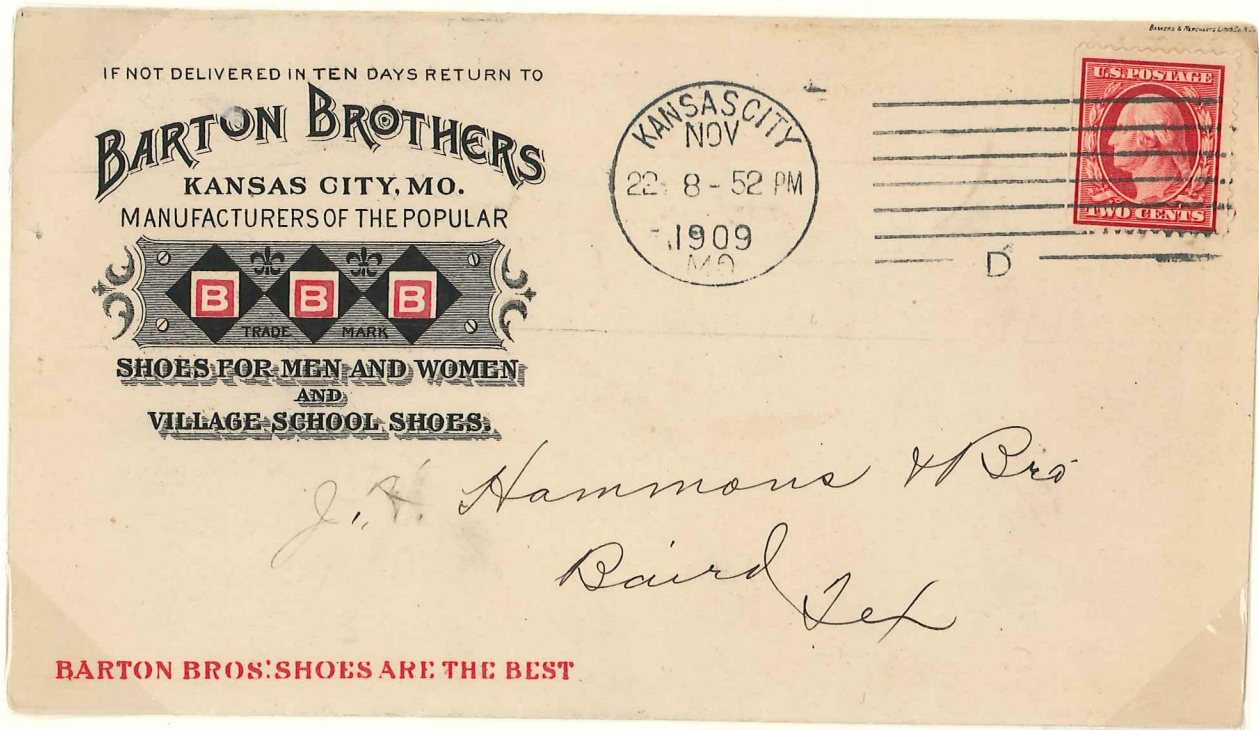 IF NOT DELIVERED IN TEN DAYS RETURN TO
BARTON BROTHERS
KANSAS CITY, MO.
MANUFACTURERS OF THE POPULAR
B B B
TRADE MARK
SHOES FOR MEN AND WOMEN
AND
VILLAGE SCHOOL SHOES.
KANSAS CITY
NOV
22 8-52 PM
1909
MO
D
U.S. POSTAGE
TWO CENTS
Hammons & Bro
Baird
Tex
BARTON BROS. SHOES ARE THE BEST